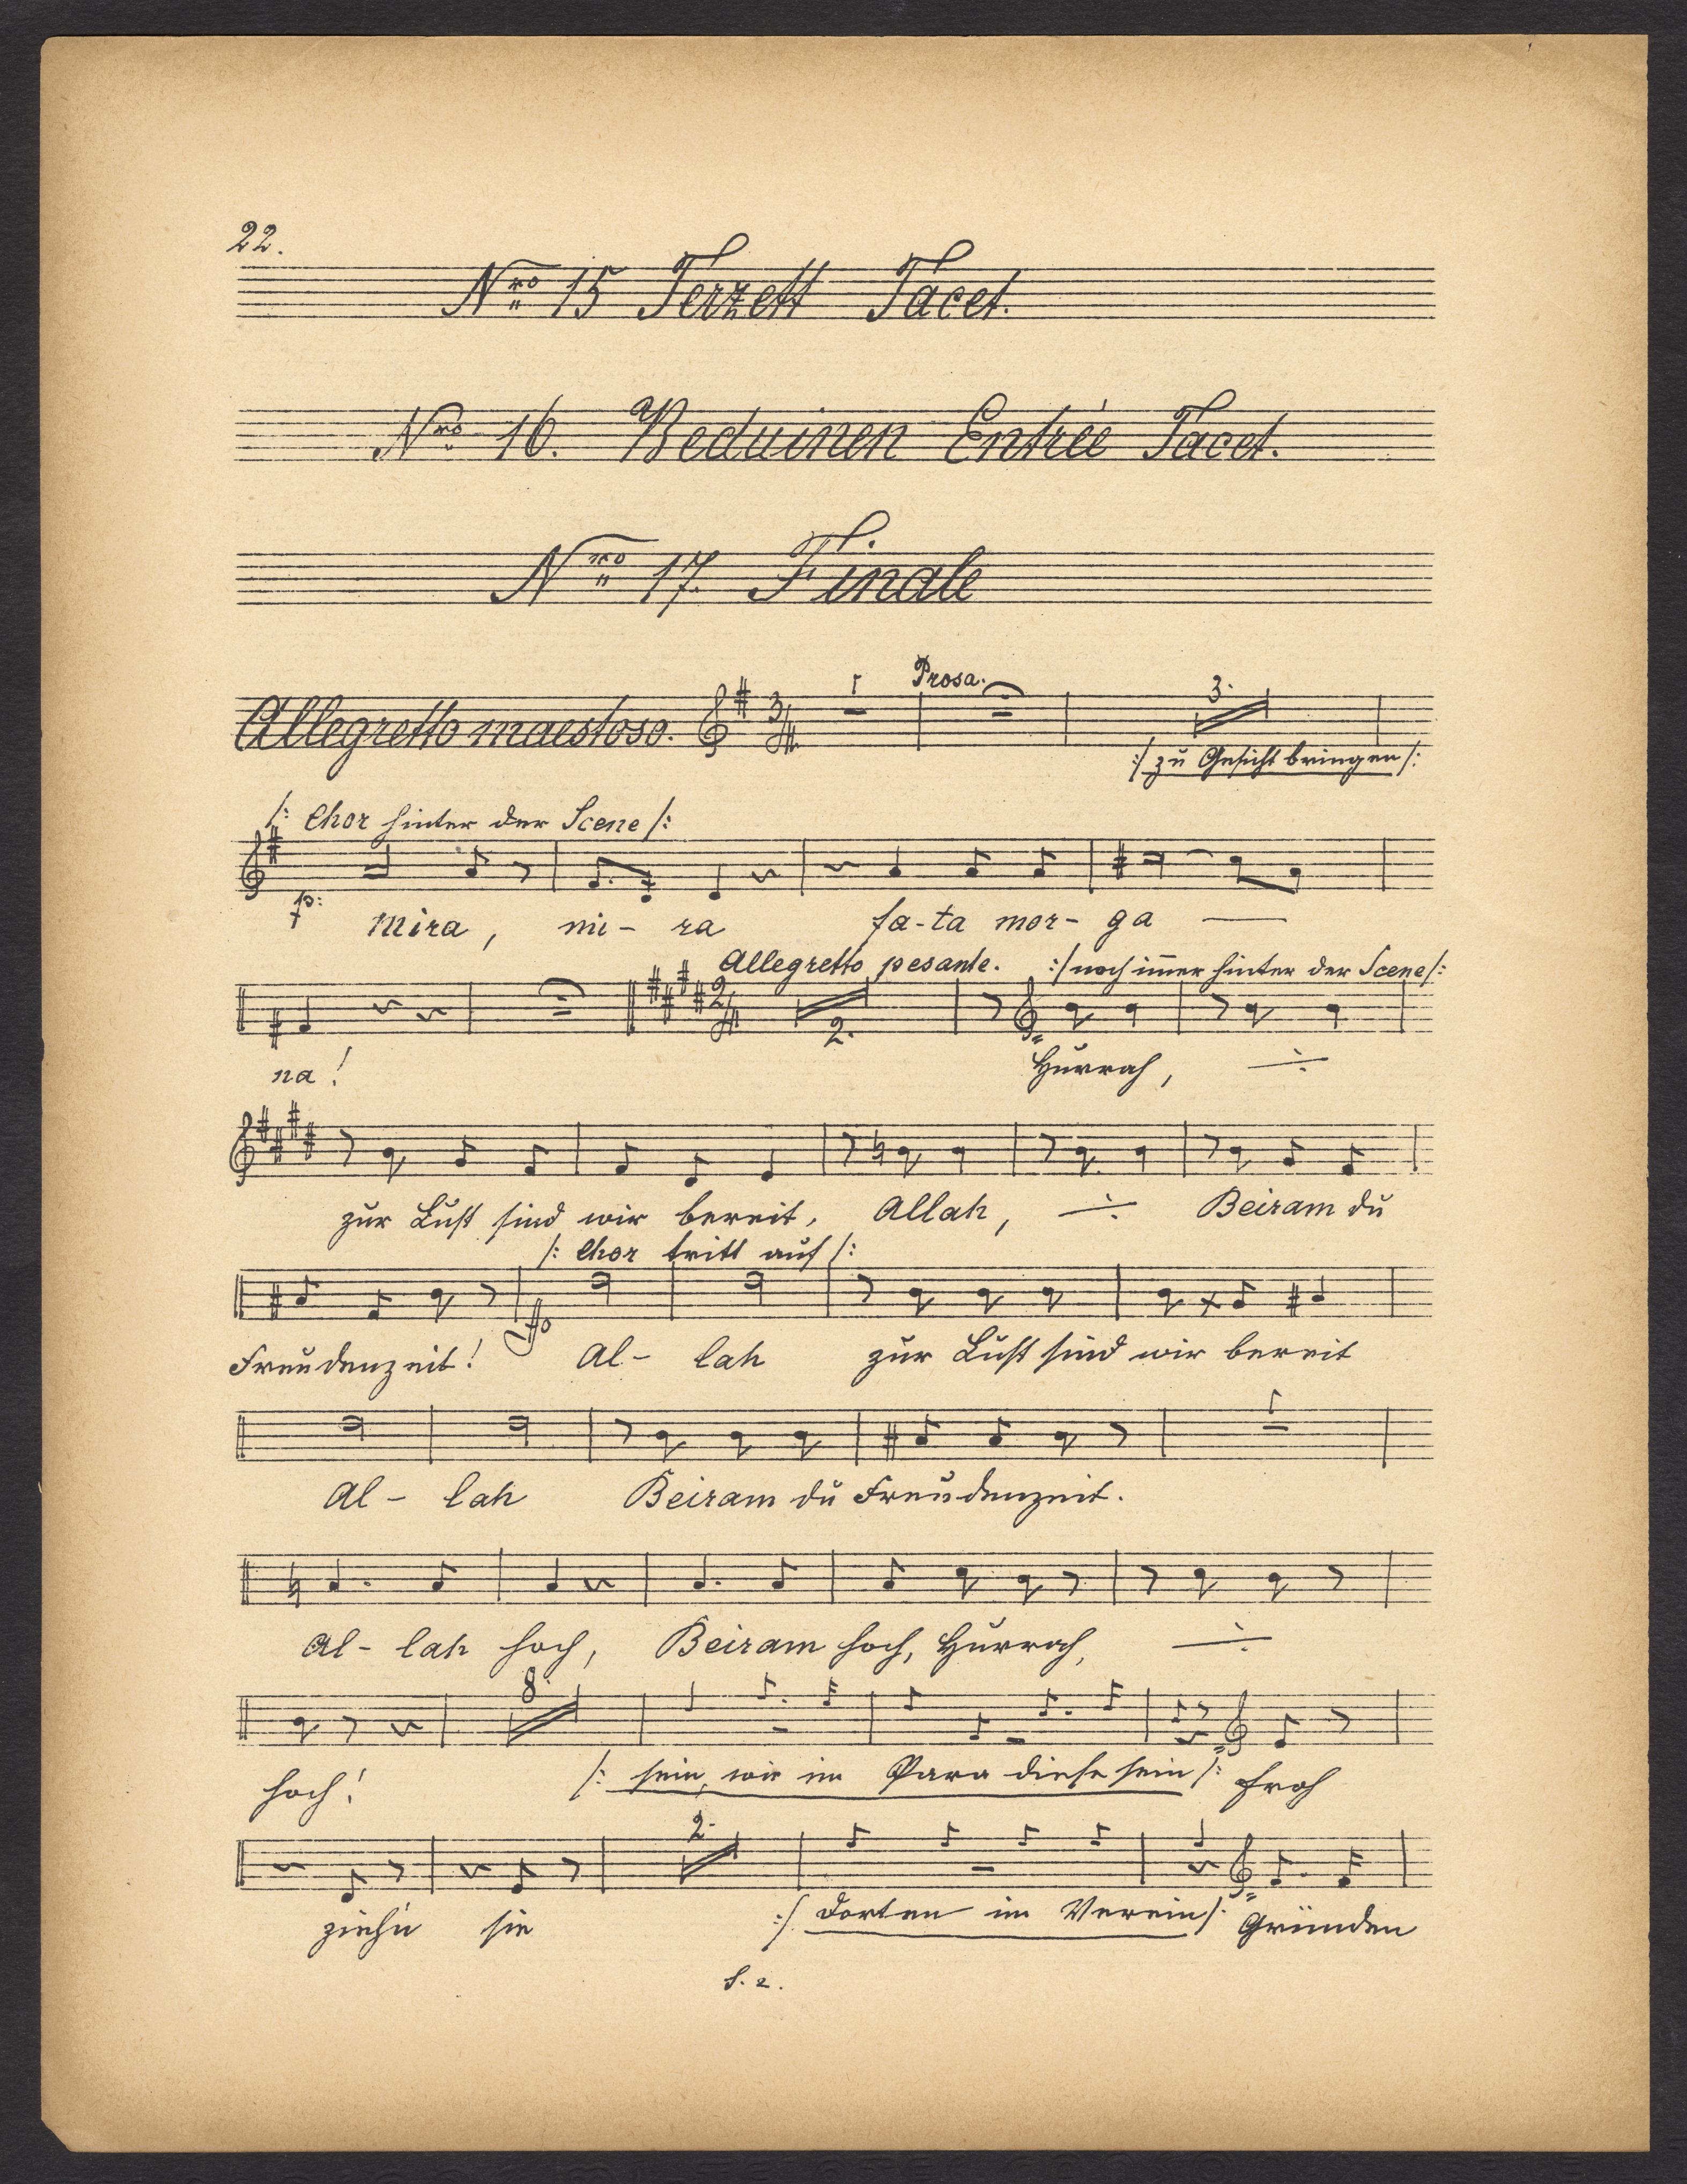 22.
Nro 15 Terzett Tacet.
Nro 16. Beduinen Entrée Tacet.
Nro 17. Finale
Prosa.
Allegretto maestoso. 3/4 1 3.
:/ zu Gesicht bringen /:
/: Chor hinter der Scene /:
p:
Mira, mi- ra fa-ta mor- ga —
Allegretto pesante. :/ noch im̄er hinter der Scene /:
2/4 2.
na! Hurrah, ÷
zur Lust sind wir bereit, Allah, ÷ Beiram du
/: Chor tritt auf /:
Freudenzeit! Al- lah zur Lust sind wir bereit
1
Al- lah Beiram du Freudenzeit.
Al- lah hoch, Beiram hoch, Hurrah, ÷
8.
hoch! /: sein, wie im Para diese sein /: Froh
2.
zieh'n sie :/ dorten im Verein /: Gründen
S. 2.